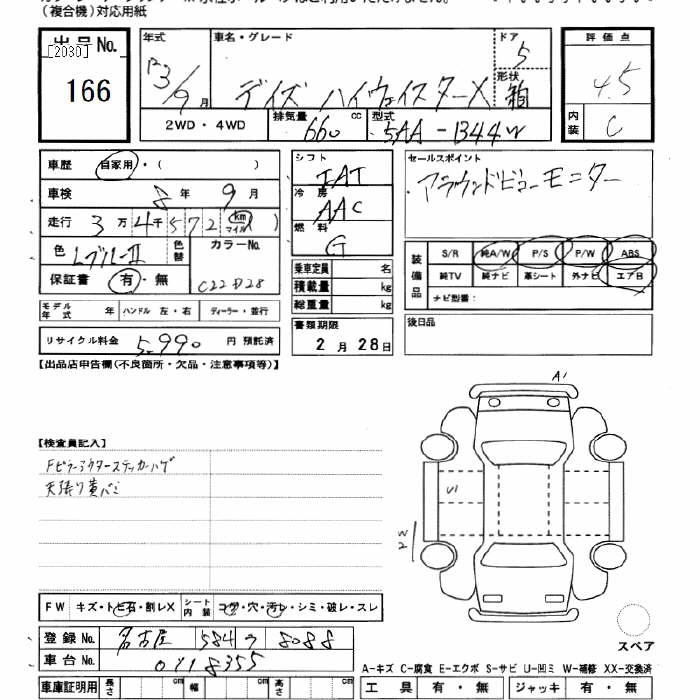 (複合機)対応用紙
出品No.
[2030]
166
年式
R3/9月
車名・グレード
デイズ ハイウェイスターX
ドア
5
形状
箱
評価点
4.5
内装
C
2WD・4WD
排気量
660
cc
型式
5AA-B44W
車歴 自家用・( )
車検 8年 9月
走行 3万4千572(km マイル)
色 Lブルー II
色替
カラーNo.
C22D28
保証書 有・無
モデル年式 年 ハンドル 左・右 ディーラー・並行
リサイクル料金 5,990 円 預託済
シフト
IAT
冷房
AAC
燃料
G
乗車定員 名
積載量 kg
総重量 kg
書類期限
2月28日
セールスポイント
アラウンドビューモニター
装備品
S/R 純A/W P/S P/W ABS
純TV 純ナビ 革シート 外ナビ エアB
ナビ型番:
後日品
【出品店申告欄(不良箇所・欠品・注意事項等)】
【検査員記入】
Fピラーアウターステッカーハゲ
天張り黄バミ
A1
U1
W2
FW キズ・トビ石・割レX シート内装 コゲ・穴・汚レ・シミ・破レ・スレ
登録No. 名古屋 584 ワ 8088
車台No. 0118355
車庫証明用 長さ cm 幅 cm 高さ cm
スペア
A-キズ C-腐食 E-エクボ S-サビ U-凹ミ W-補修 XX-交換済
工具 有・無 ジャッキ 有・無